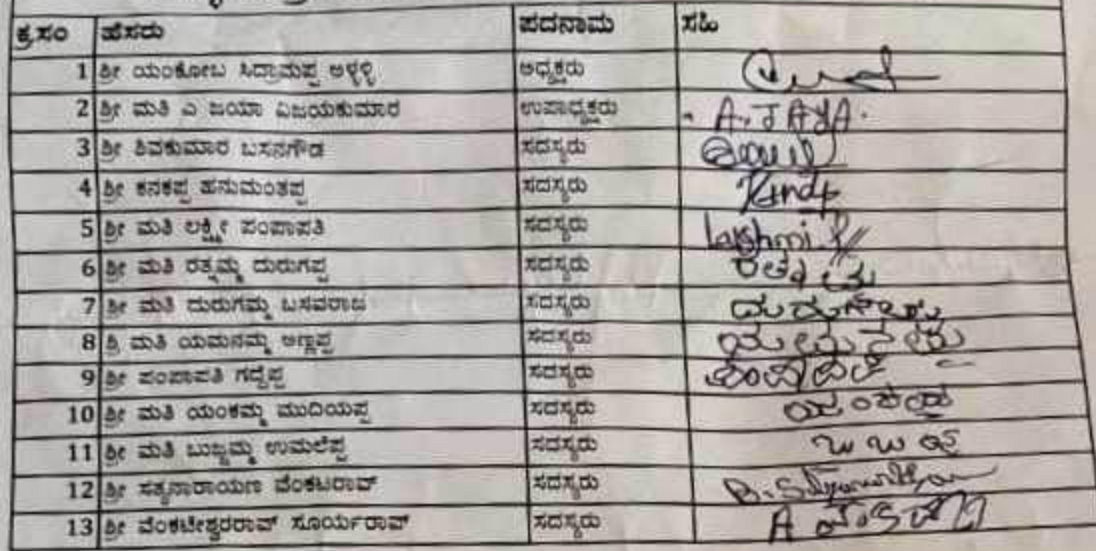 ಕ್ರ.ಸಂ ಹೆಸರು ಪದನಾಮ ಸಹಿ
1 ಶ್ರೀ ಯಂಕೋಬ ಸಿದ್ರಾಮಪ್ಪ ಅಳ್ಳಳ್ಳಿ ಅಧ್ಯಕ್ಷರು
2 ಶ್ರೀ ಮತಿ ಎ ಜಯಾ ವಿಜಯಕುಮಾರ ಉಪಾಧ್ಯಕ್ಷರು A. JAYA.
3 ಶ್ರೀ ಶಿವಕುಮಾರ ಬಸನಗೌಡ ಸದಸ್ಯರು
4 ಶ್ರೀ ಕನಕಪ್ಪ ಹನುಮಂತಪ್ಪ ಸದಸ್ಯರು
5 ಶ್ರೀ ಮತಿ ಲಕ್ಷ್ಮೀ ಪಂಪಾಪತಿ ಸದಸ್ಯರು Lakshmi.P
6 ಶ್ರೀ ಮತಿ ರತ್ನಮ್ಮ ದುರುಗಪ್ಪ ಸದಸ್ಯರು
7 ಶ್ರೀ ಮತಿ ದುರುಗಮ್ಮ ಬಸವರಾಜ ಸದಸ್ಯರು
8 ಶ್ರಿ ಮತಿ ಯಮನಮ್ಮ ಅಣ್ಣಪ್ಪ ಸದಸ್ಯರು
9 ಶ್ರೀ ಪಂಪಾಪತಿ ಗದ್ದೆಪ್ಪ ಸದಸ್ಯರು ಪಂಪಾಪತಿ
10 ಶ್ರೀ ಮತಿ ಯಂಕಮ್ಮ ಮುದಿಯಪ್ಪ ಸದಸ್ಯರು
11 ಶ್ರೀ ಮತಿ ಬುಜ್ಜಮ್ಮ ಉಮಲೆಪ್ಪ ಸದಸ್ಯರು
12 ಶ್ರೀ ಸತ್ಯನಾರಾಯಣ ವೆಂಕಟರಾವ್ ಸದಸ್ಯರು
13 ಶ್ರೀ ವೆಂಕಟೇಶ್ವರರಾವ್ ಸೂರ್ಯರಾವ್ ಸದಸ್ಯರು